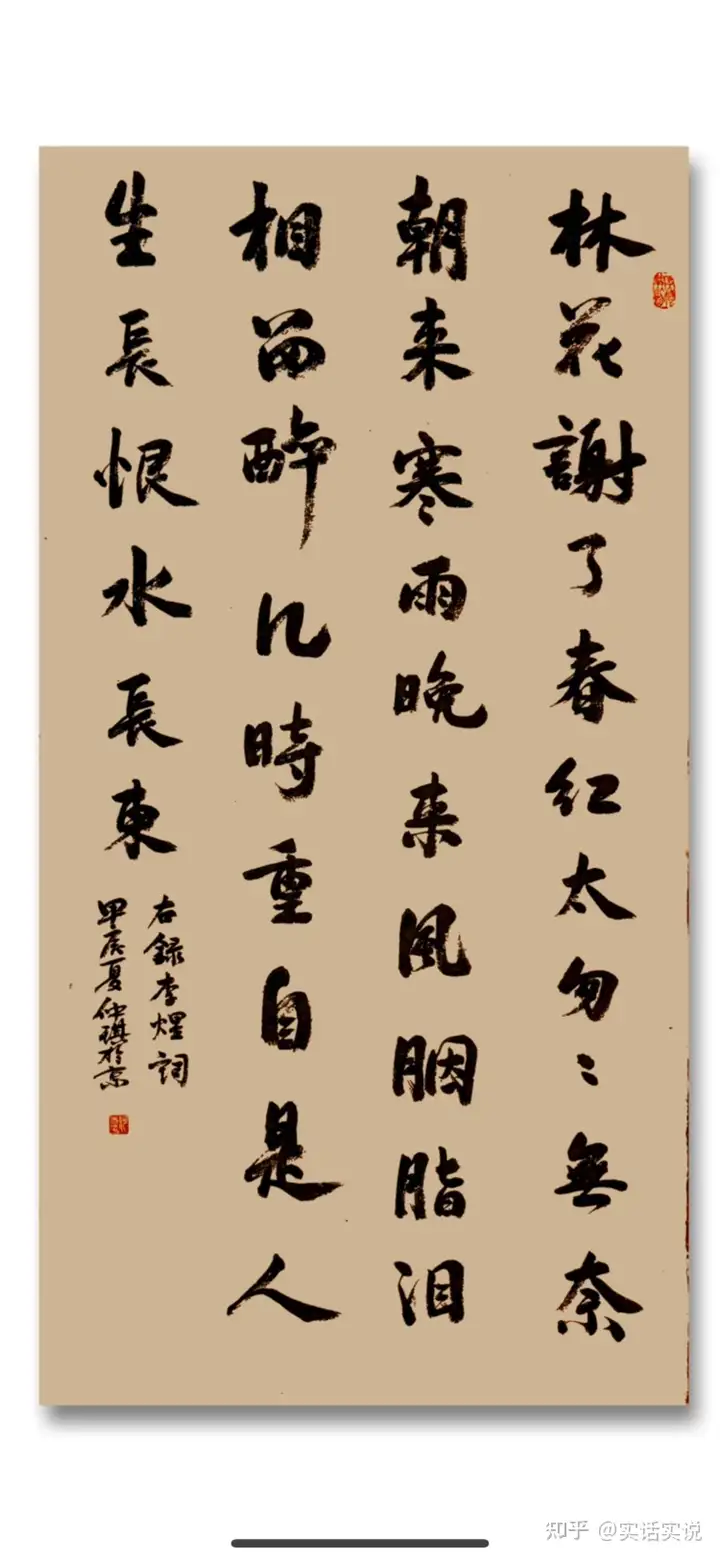 林花謝了春红太匆〻無奈
朝来寒雨晚来風胭脂泪
相留醉几時重自是人
生長恨水長東
右録李煜詞
甲辰夏仲琪於京
知乎 @实话实说